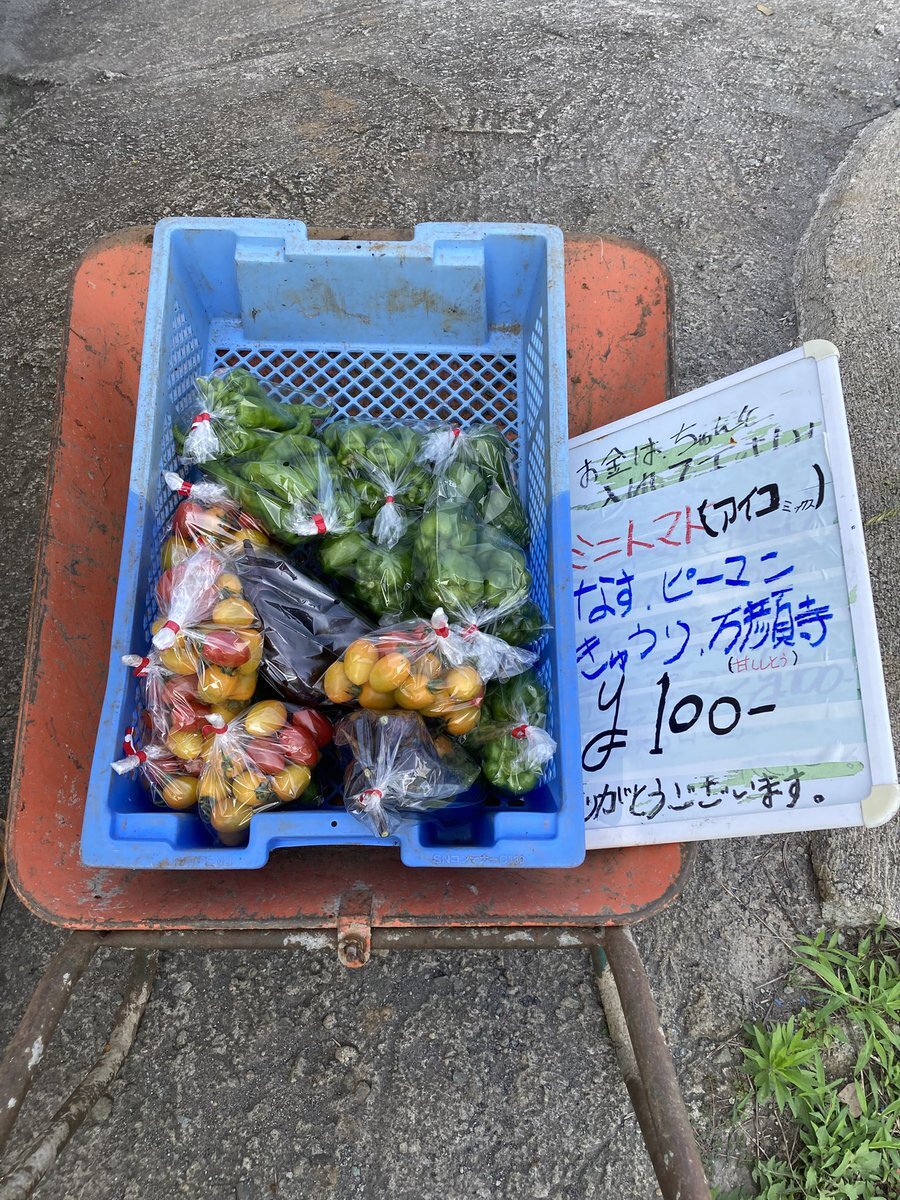 お金は、ちゃんと
入れて下さい
ミニトマト(アイコ ミックス)
なす、ピーマン
きゅうり、万願寺
(甘ししとう)
¥100-
りがとうございます。